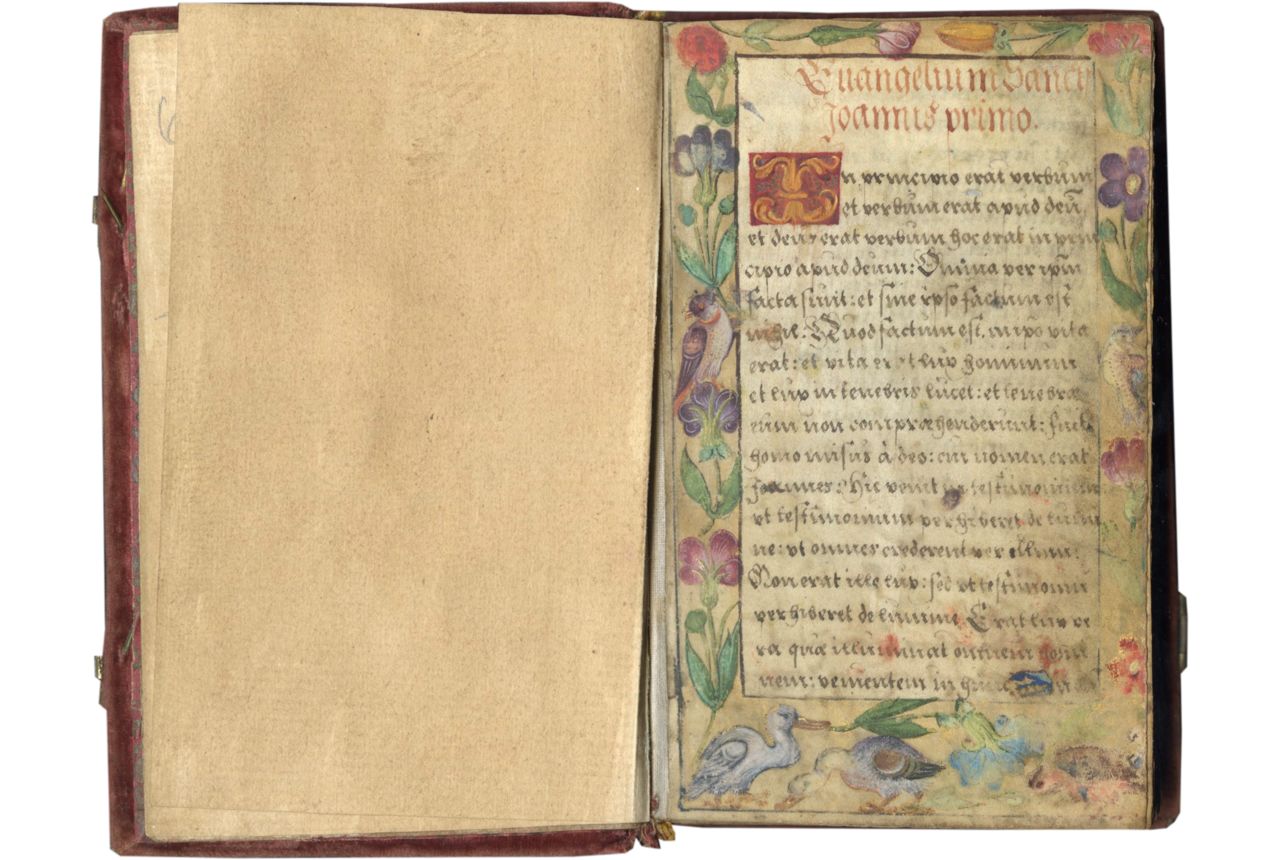 Euangelium Sancti
Joannis primo.
In principio erat verbum
et verbum erat apud deū,
et deus erat verbum hoc erat in prin
cipio apud deum: Omnia per ipm
facta sunt: et sine ipso factum est
nihil. Quod factum est, in ipo vita
erat: et vita erat lux hominum
et lux in tenebris lucet: et tenebræ
eum non compræhenderunt: fuit
homo misus à deo: cui nomen erat
Joannes: Hic venit in testimonium
vt testimonium perhiberet de lumi
ne: vt omnes crederent per illum:
Non erat ille lux: sed vt testimoniū
perhiberet de lumine. Erat lux ve
ra quæ illuminat omnem homi
nem: venientem in hunc